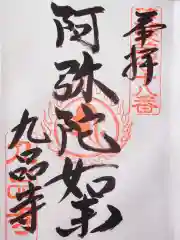 奉拝
阿弥陀如来
九品寺